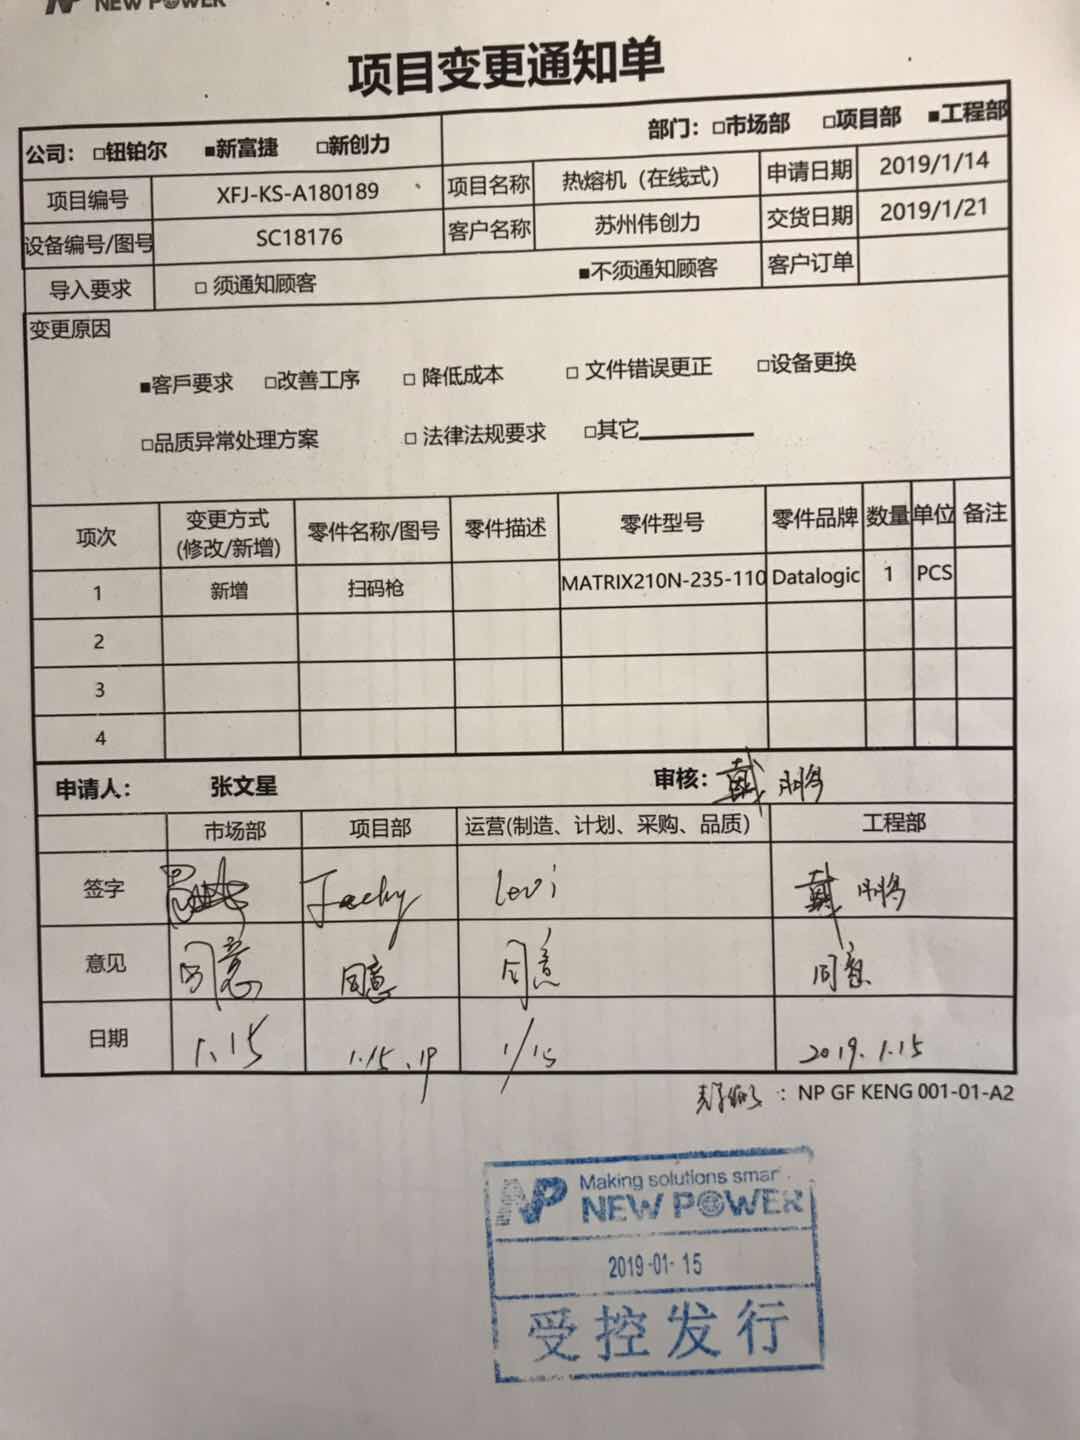 NP NEW POWER
项目变更通知单
公司： □钮铂尔 ■新富捷 □新创力 部门：□市场部 □项目部 ■工程部
项目编号 XFJ-KS-A180189 项目名称 热熔机（在线式） 申请日期 2019/1/14
设备编号/图号 SC18176 客户名称 苏州伟创力 交货日期 2019/1/21
导入要求 □ 须通知顾客 ■不须通知顾客 客户订单
变更原因
■客戶要求 □改善工序 □ 降低成本 □ 文件错误更正 □设备更换
□品质异常处理方案 □ 法律法规要求 □其它
项次 变更方式(修改/新增) 零件名称/图号 零件描述 零件型号 零件品牌 数量 单位 备注
1 新增 扫码枪 MATRIX210N-235-110 Datalogic 1 PCS
2
3
4
申请人： 张文星 审核：戴鹏
市场部 项目部 运营(制造、计划、采购、品质) 工程部
签字 Jachy Levi 戴鹏
意见 同意 同意 同意 同意
日期 1.15 1.15.19 1/15 2019.1.15
：NP GF KENG 001-01-A2
NP Making solutions smar
NEW POWER
2019-01-15
受控发行